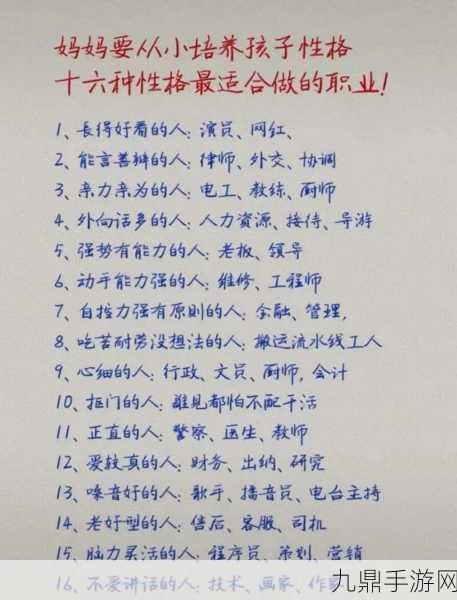 妈妈要从小培养孩子性格
十六种性格最适合做的职业！
1、長得好看的人：演员、网红、
2、能言善辩的人：律师、外交、协调
3、亲力亲为的人：电工、教练、厨师
4、外向话多的人：人力资源、接待、导游
5、强势有能力的人：老板、领导
6、动手能力强的人：维修、工程师
7、自控力强有原则的人：金融、管理，
8、吃苦耐劳没想法的人：搬运流水线工人
9、心细的人：行政、文员、厨师，会计
10、抠门的人：谁见都怕不配干活
11、正直的人：警察、医生、教师
12、爱较真的人：财务、出纳、研究
13、嗓音好的人：歌手、播音员、电台主持
14、老好型的人：售后、客服、司机
15、脑力灵活的人：程序员、策划、营销
16、不爱讲话的人：技术、画家、作家
九鼎手游网